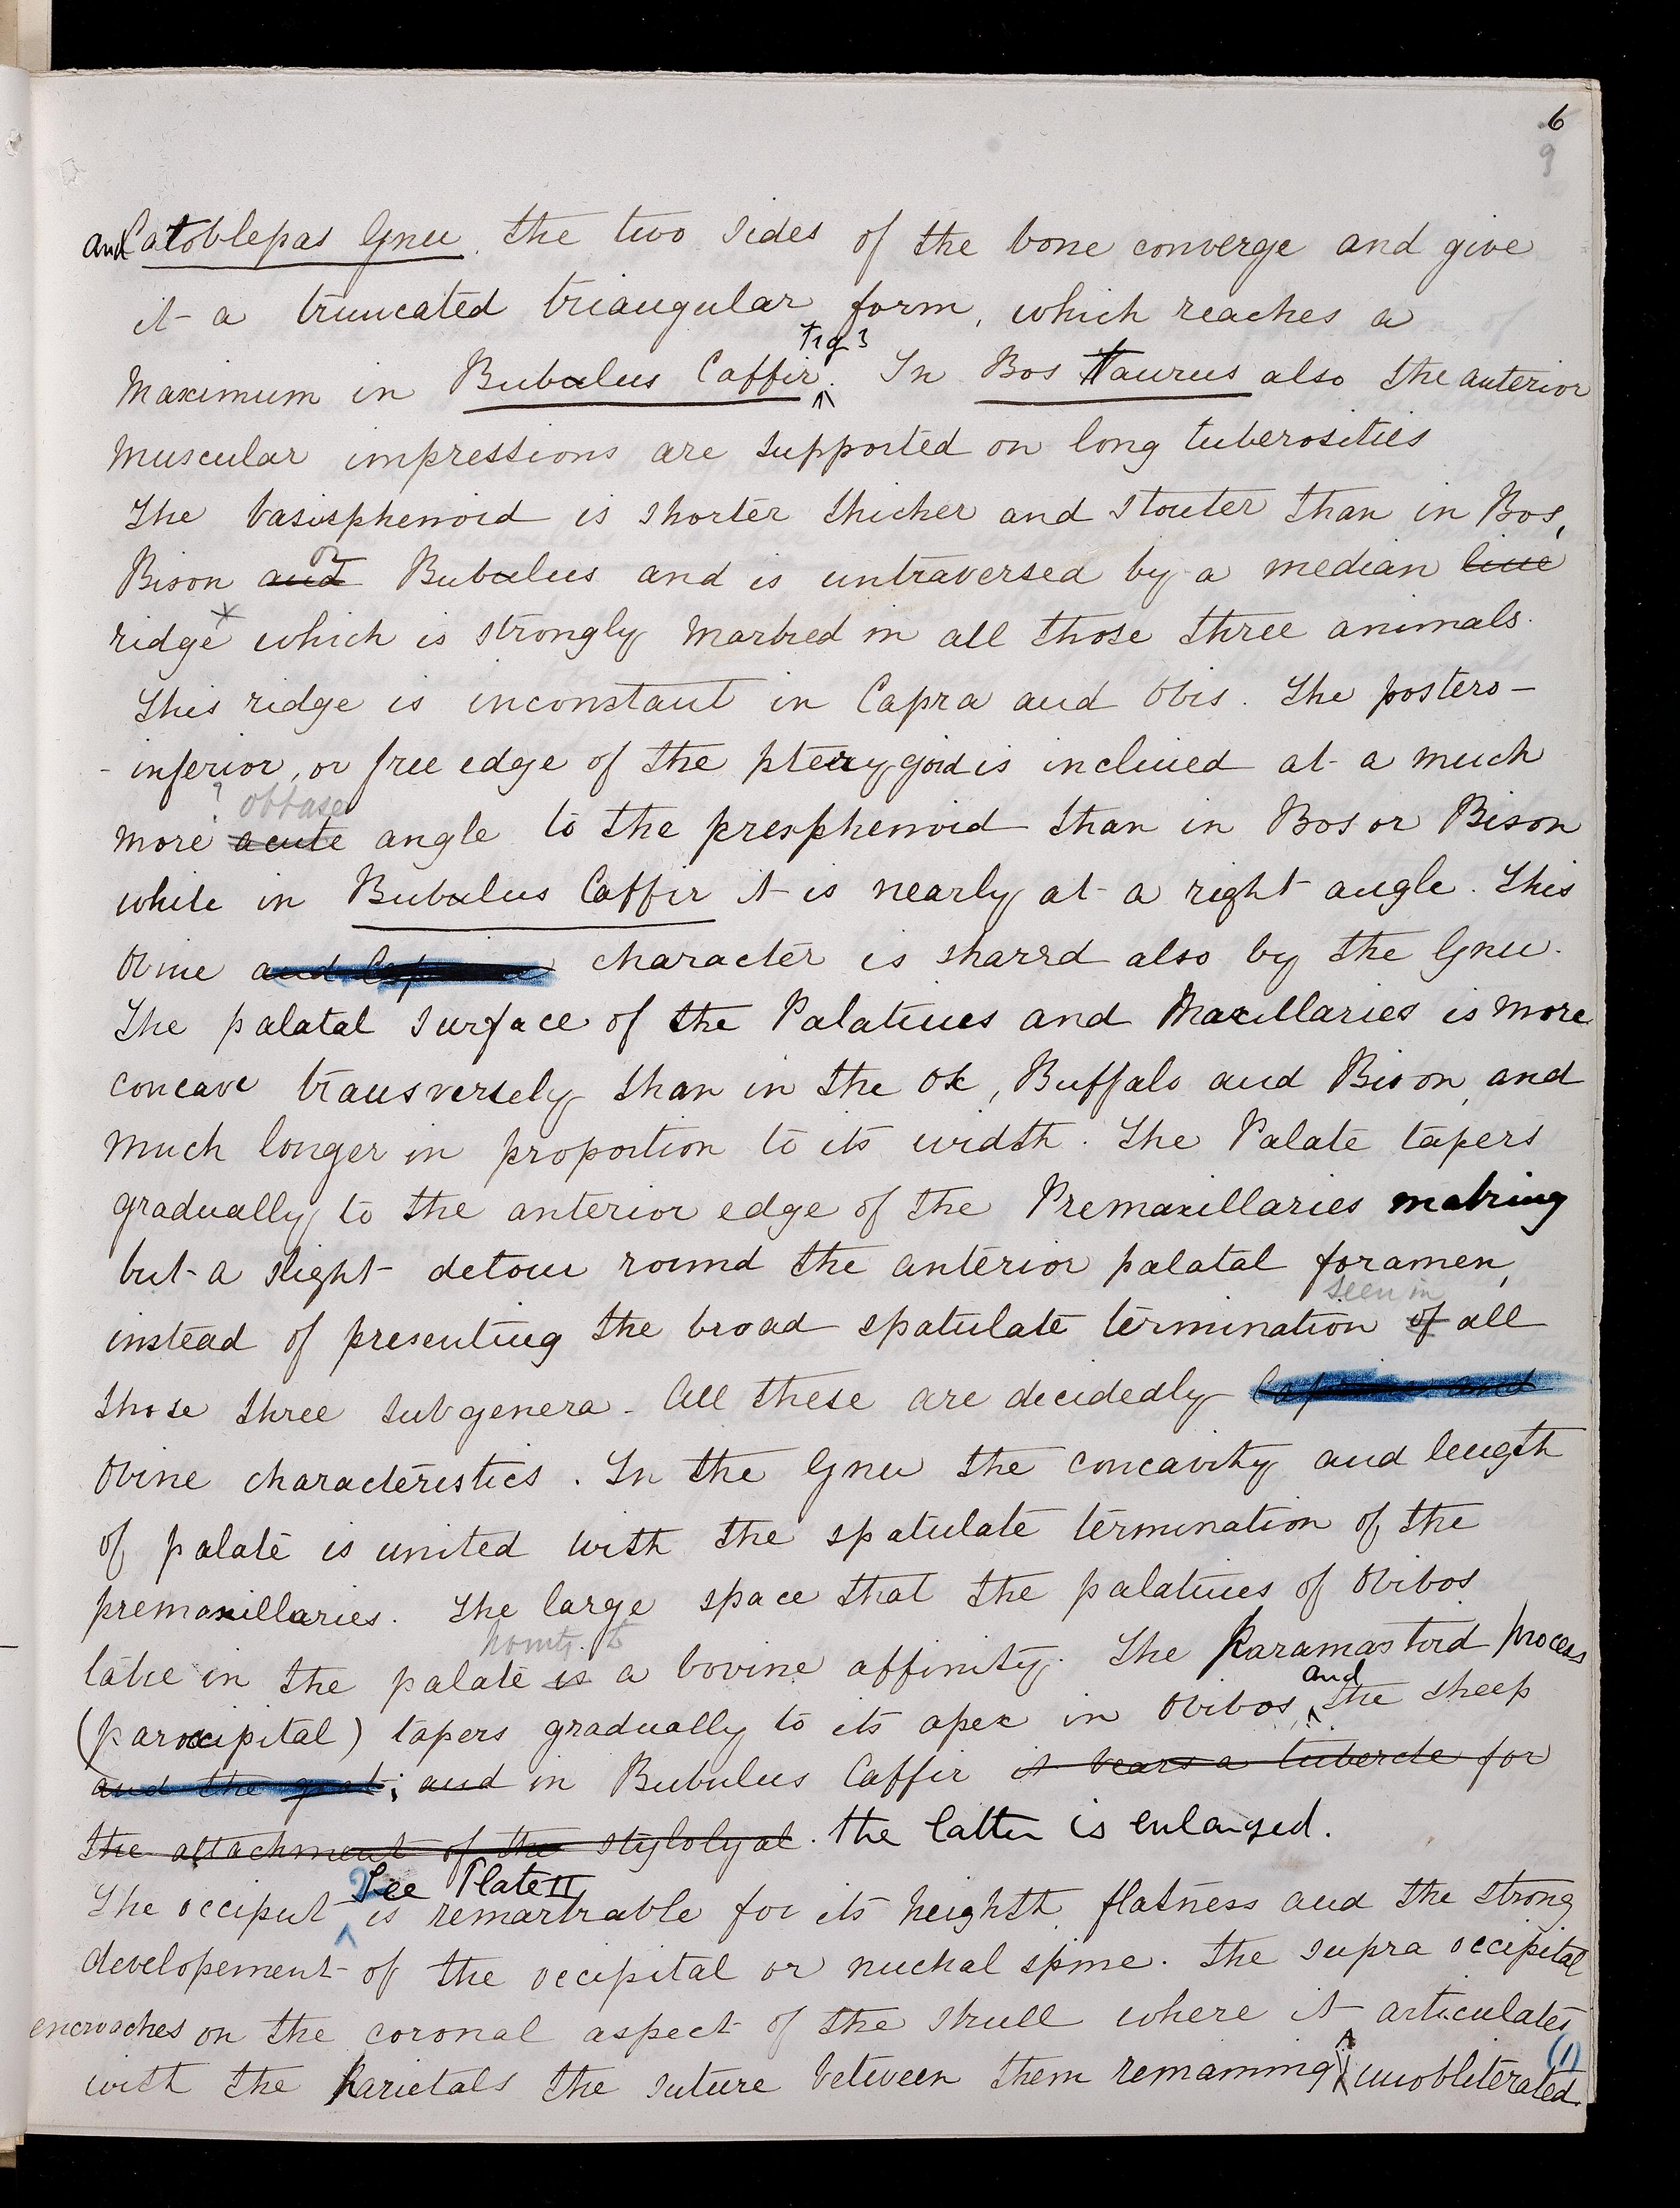 6
9
and Catoblepas Gnu the two sides of the bone converge and give
it a truncated triangular form, which reaches a
Fig 3
maximum in Bubalus Caffir. In Bos Taurus also the anterior
muscular impressions are supported on long tuberosities
The basisphenoid is shorter thicker and stouter than in Bos,
or
Bison and Bubalus and is untraversed by a median line
ridge * which is strongly marked in all those three animals.
This ridge is inconstant in Capra and Ovis. The postero-
-inferior, or free edge of the pterygoid is inclined at a much
? obtuse
more acute angle to the presphenoid than in Bos or Bison
while in Bubalus Caffir it is nearly at a right angle. This
Ovine and Caprine character is shared also by the Gnu.
The palatal surface of the Palatines and Maxillaries is more
concave transversely than in the Ox, Buffalo and Bison, and
much longer in proportion to its width. The Palate tapers
gradually to the anterior edge of the Premaxillaries making
but a slight detour round the anterior palatal foramen,
seen in
instead of presenting the broad spatulate termination of all
those three subgenera. All these are decidedly Caprine and
Ovine characteristics. In the Gnu the concavity and length
of palate is united with the spatulate termination of the
premaxillaries. The large space that the palatines of Ovibos
points to
take in the palate is a bovine affinity. The Paramastoid process
and
(paroccipital) tapers gradually to its apex in Ovibos the sheep
and the goat; and in Bubulus Caffir it bears a tubercle for
the attachment of the stylohyal. the latter is enlarged.
See Plate II
The occiput is remarkable for its heighth flatness and the strong
developement of the occipital or nuchal spine. The supra occipital
encroaches on the coronal aspect of the skull where it articulates
(1)
with the Parietals the suture between them remaining unobliterated.